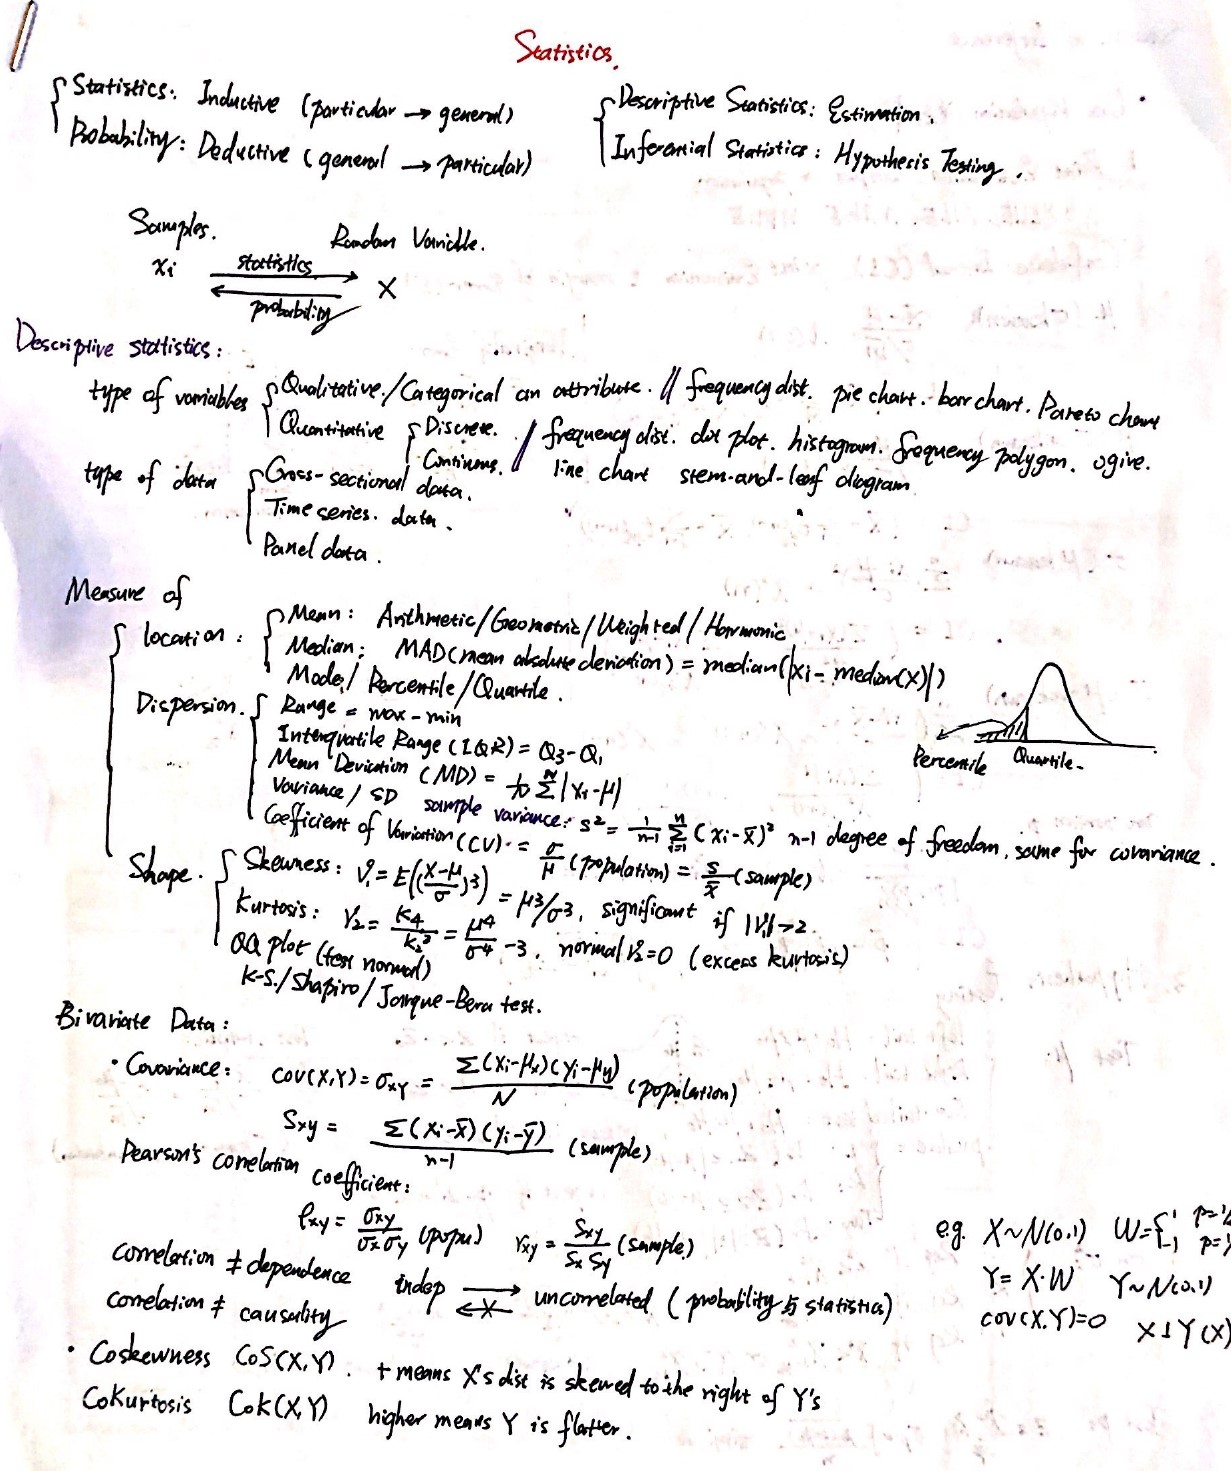 Statistics.
Statistics: Inductive (particular → general)
Probability: Deductive (general → particular)
Descriptive Statistics: Estimation.
Inferential Statistics: Hypothesis Testing.
Samples. Random Variable.
xi statistics X
probability
Descriptive statistics:
type of variables Qualitative/Categorical an attribute. // frequency dist. pie chart. bar chart. Pareto chart
Quantitative Discrete. // frequency dist. dot plot. histogram. frequency polygon. ogive.
Continuous. line chart stem-and-leaf diagram
type of data Cross-sectional data.
Time series. data.
Panel data.
Measure of
location: Mean: Arithmetic/Geometric/Weighted/Harmonic
Median: MAD(mean absolute deviation) = median(|xi - median(X)|)
Mode/Percentile/Quartile.
Percentile Quartile.
Dispersion. Range = max-min
Interquartile Range (IQR) = Q₃-Q₁
Mean Deviation (MD) = 1/N Σ^N |xi-μ|
Variance/SD sample variance: s² = 1/(n-1) Σ_{i=1}^n (xi-x̄)² n-1 degree of freedom, same for covariance.
Coefficient of Variation (CV) = σ/μ (population) = s/x̄ (sample)
Shape. Skewness: γ₁ = E((X-μ/σ)³) = μ³/σ³, significant if |γ₁|>2.
Kurtosis: γ₂ = K₄/K₂² = μ⁴/σ⁴ -3, normal γ₂=0 (excess kurtosis)
QQ plot (test normal)
K-S./Shapiro/Jarque-Bera test.
Bivariate Data:
• Covariance: cov(X,Y) = σxy = Σ(xi-μx)(yi-μy)/N (population)
Sxy = Σ(xi-x̄)(yi-ȳ)/n-1 (sample)
Pearson's correlation coefficient:
ρxy = σxy/σxσy (popu) rxy = Sxy/SxSy (sample)
correlation ≠ dependence indep → uncorrelated (probability 与 statistics)
correlation ≠ causality
e.g. X~N(0,1) W={1 -1 p= p=
Y=X·W Y~N(0,1)
cov(X,Y)=0 X⊥Y (X)
• Coskewness CoS(X,Y). + means X's dist is skewed to the right of Y's
CoKurtosis CoK(X,Y) higher means Y is flatter.